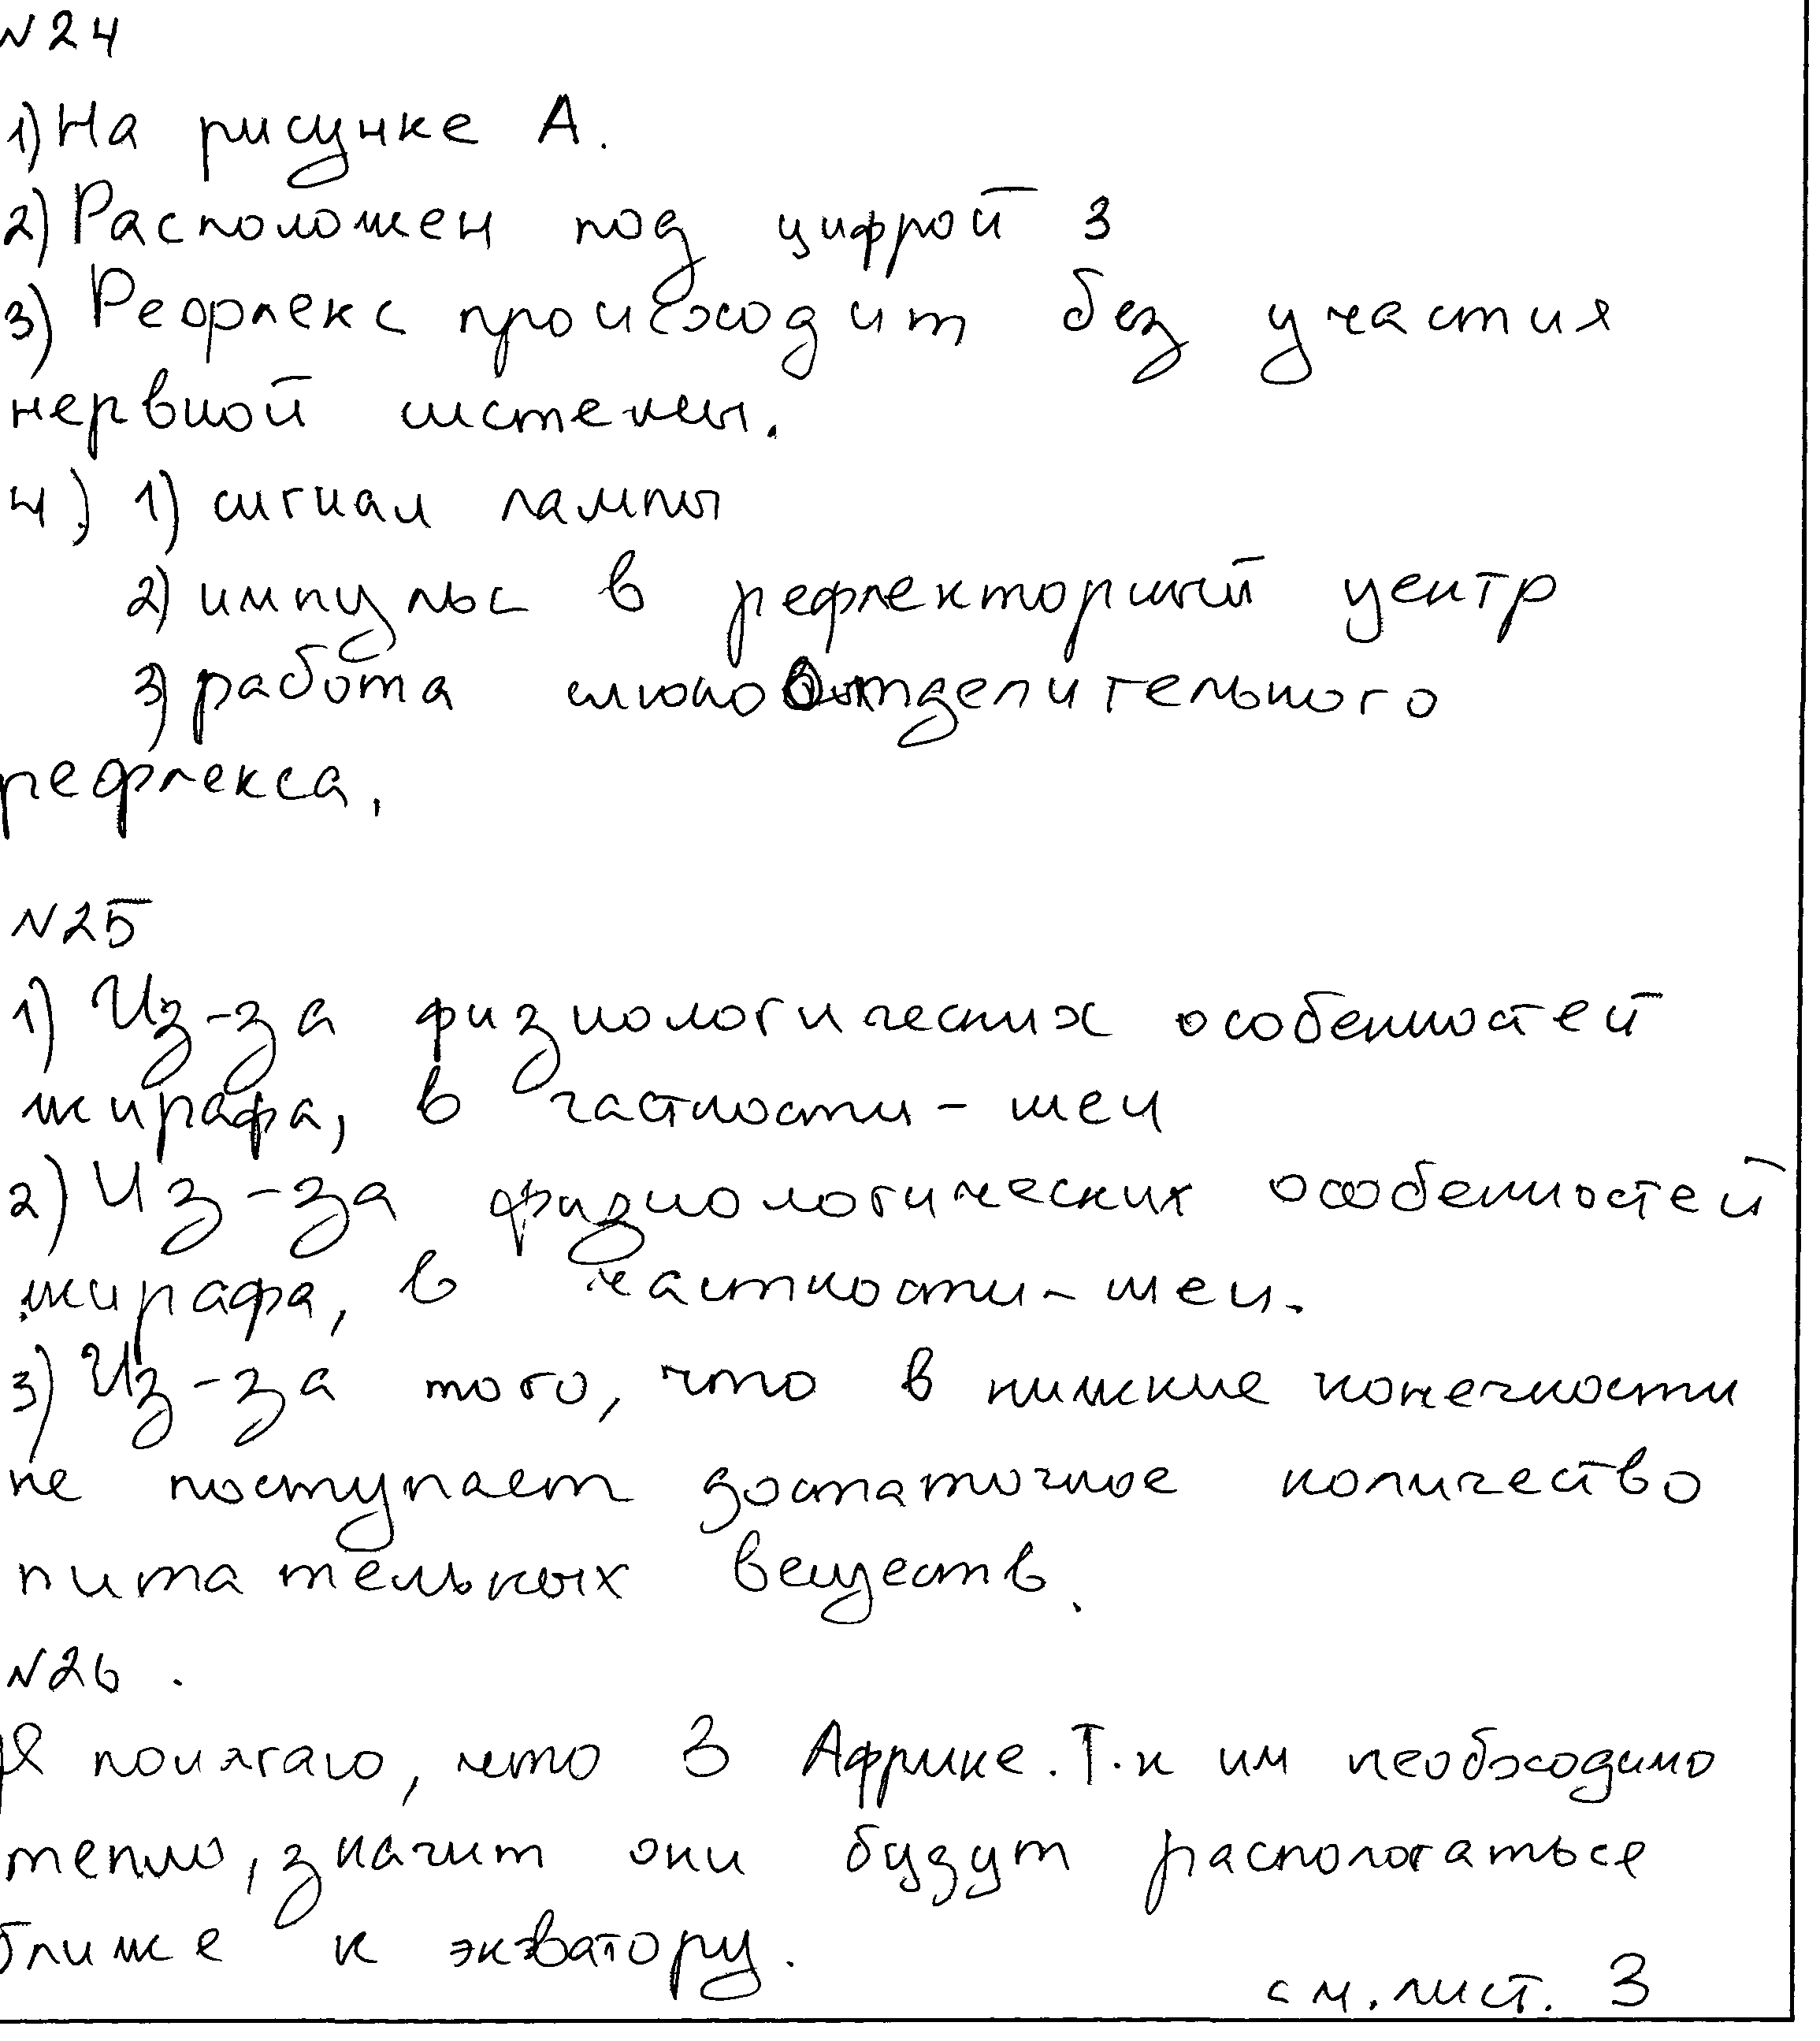 N24
1) На рисунке А.
2) Расположен под цифрой 3
3) Рефлекс происходит без участия
нервной системы.
4) 1) сигнал лампы
2) импульс в рефлекторный центр
3) работа слюноотделительного
рефлекса.
N25
1) Из-за физиологических особенностей
жирафа, в частности - шеи
2) Из-за физиологических особенностей
жирафа, в частности - шеи.
3) Из-за того, что в нижние конечности
не поступает достаточное количество
питательных веществ.
N26.
Я полагаю, что З Африке. Т.к им необходимо
тепло, значит они будут распологаться
ближе к экватору.
см. лист. 3